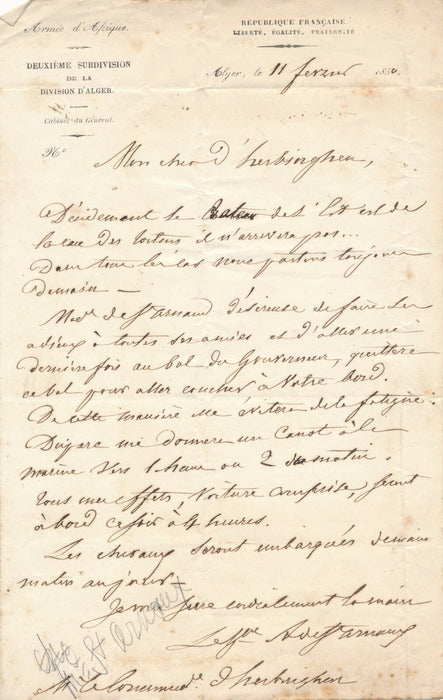 Armée d'Afrique.
DEUXIÈME SUBDIVISION
DE LA
DIVISION D'ALGER.
Cabinet du Général.
N°
RÉPUBLIQUE FRANÇAISE.
LIBERTÉ, ÉGALITÉ, FRATERNITÉ
Alger, le 11 fevrier 1850.
Mon cher d'herbinghen,
Décidement le de l'Est est de
la race des tortues il n'arrivera pas...
Dans tous les cas nous partons toujours
demain —
Mad.e de St Arnaud désireuse de faire ses
adieux à toutes ses amies et d'aller une
dernière fois au bal du Gouverneur, quittera
ce bal pour aller coucher à votre bord.
De cette manière elle évitera de la fatigue.
me donnera un canot à la
marine vers 1 heure ou 2 du matin.
Tous mes effets, voiture comprise, seront
à bord ce soir à 4 heures.
Les chevaux seront embarqués demain
matin au jour.
Je vous serre cordialement la main
Le G.al A de St Arnaud
M. le Command.t d'herbinghen
St Arnaud